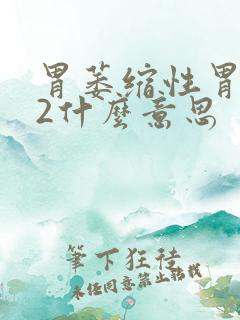 胃萎缩性胃
2什麽意思
筆下狂徒
未经同意禁止转载